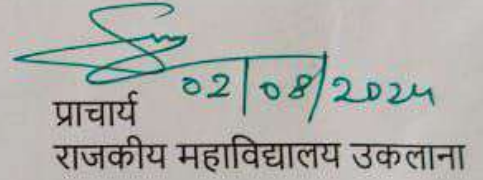 02/08/2024
प्राचार्य
राजकीय महाविद्यालय उकलाना